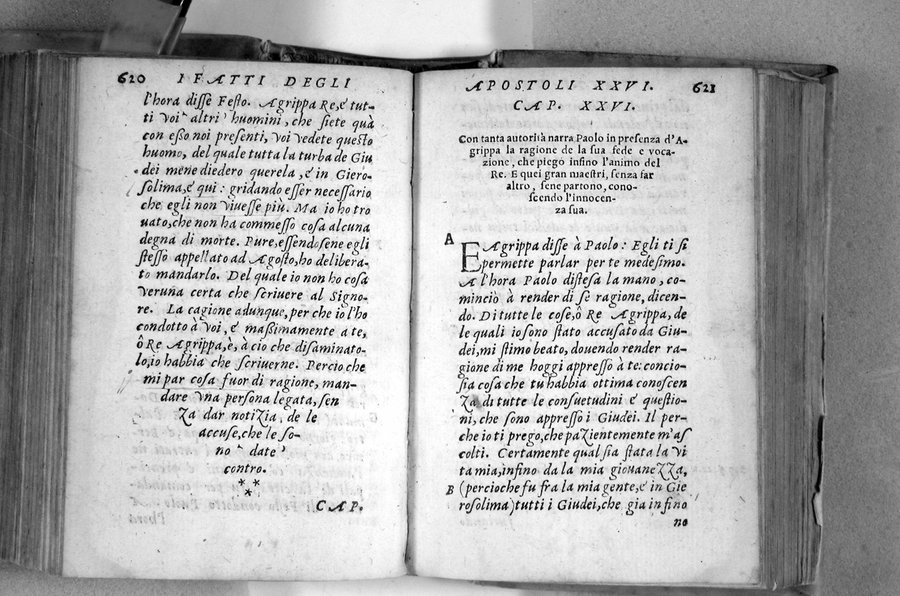 620 I FATTI DEGLI
l'hora disse Festo. Agrippa Re, e tut-
ti voi altri huomini, che siete quà
con esso noi presenti, voi vedete questo
huomo, del quale tutta la turba de Giu
dei mene diedero querela, e in Giero-
solima, e qui: gridando esser necessario
che egli non vivesse più. Ma io ho tro
uato, che non ha commesso cosa alcuna
degna di morte. Pure, essendosene egli
stesso appellato ad Agosto, ho delibera-
to mandarlo. Del quale io non ho cosa
veruna certa che scriuere al Signo-
re. La cagione adunque, per che io l'ho
condotto à voi, e maßimamente a te,
ô Re Agrippa, è, à cio che disaminato-
lo, io habbia che scriuerne. Percio che
mi par cosa fuor di ragione, man-
dare vna persona legata, sen
za dar notizia, de le
accuse, che le so-
no date
contro.
* *
*
CAP.
APOSTOLI XXVI. 621
CAP. XXVI.
Con tanta autorità narra Paolo in presenza d'A-
grippa la ragione de la sua fede e voca-
zione, che piego infino l'animo del
Re. E quei gran maestri, senza far
altro, sene partono, cono-
scendo l'innocen-
za sua.
A
E Agrippa disse à Paolo: Egli ti si
permette parlar per te medesimo.
Al'hora Paolo distesa la mano, co-
mincio à render di se ragione, dicen-
do. Di tutte le cose, ô Re Agrippa, de
le quali io sono stato accusato da Giu-
dei, mi stimo beato, douendo render ra-
gione di me hoggi appresso à te: concio-
sia cosa che tu habbia ottima conoscen
za di tutte le consuetudini e questio-
ni, che sono appresso i Giudei. Il per-
che io ti prego, che pazientemente m'as
colti. Certamente qual sia stata la vi
ta mia, infino da la mia giouanezza,
B (percioche fu fra la mia gente, e in Gie
rosolima) tutti i Giudei, che gia infino
no